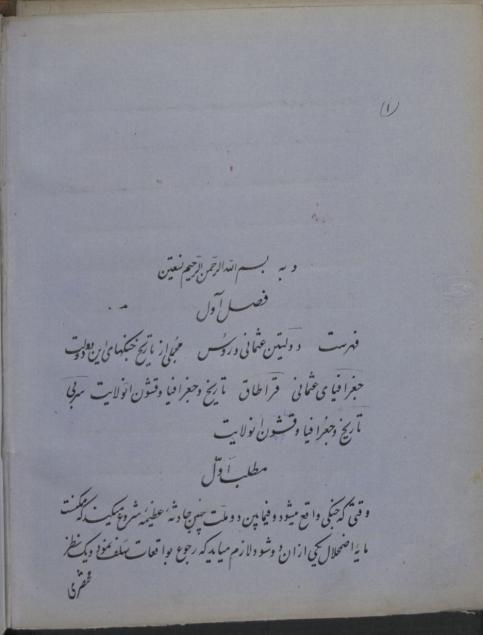 (۱)
و به بسم الله الرحمن الرحیم نستعین
فصل اول
فهرست دولتین عثمانی و روس مجملی از تاریخ جنگهای این دو دولت
جغرافیای عثمانی قراطاق تاریخ و جغرافیا و قشون انولایت سربی
تاریخ و جغرافیا و قشون انولایت
مطلب اول
وقتی که جنگی واقع میشود و فیمابین دو ملت چنین حادثهٔ عظیمه شروع میکند که ممکنست
مایهٔ اضمحلال یکی از ان دو شود لازم میاید که رجوع بواقعات سلف نمود و یک نظر
مختصری